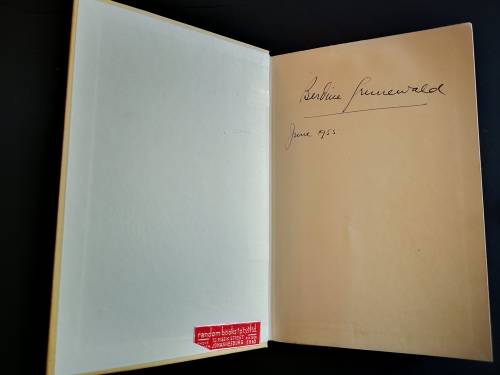 Berdine Grunewald
June 1955
random books (pty) ltd
JOHANNESBURG